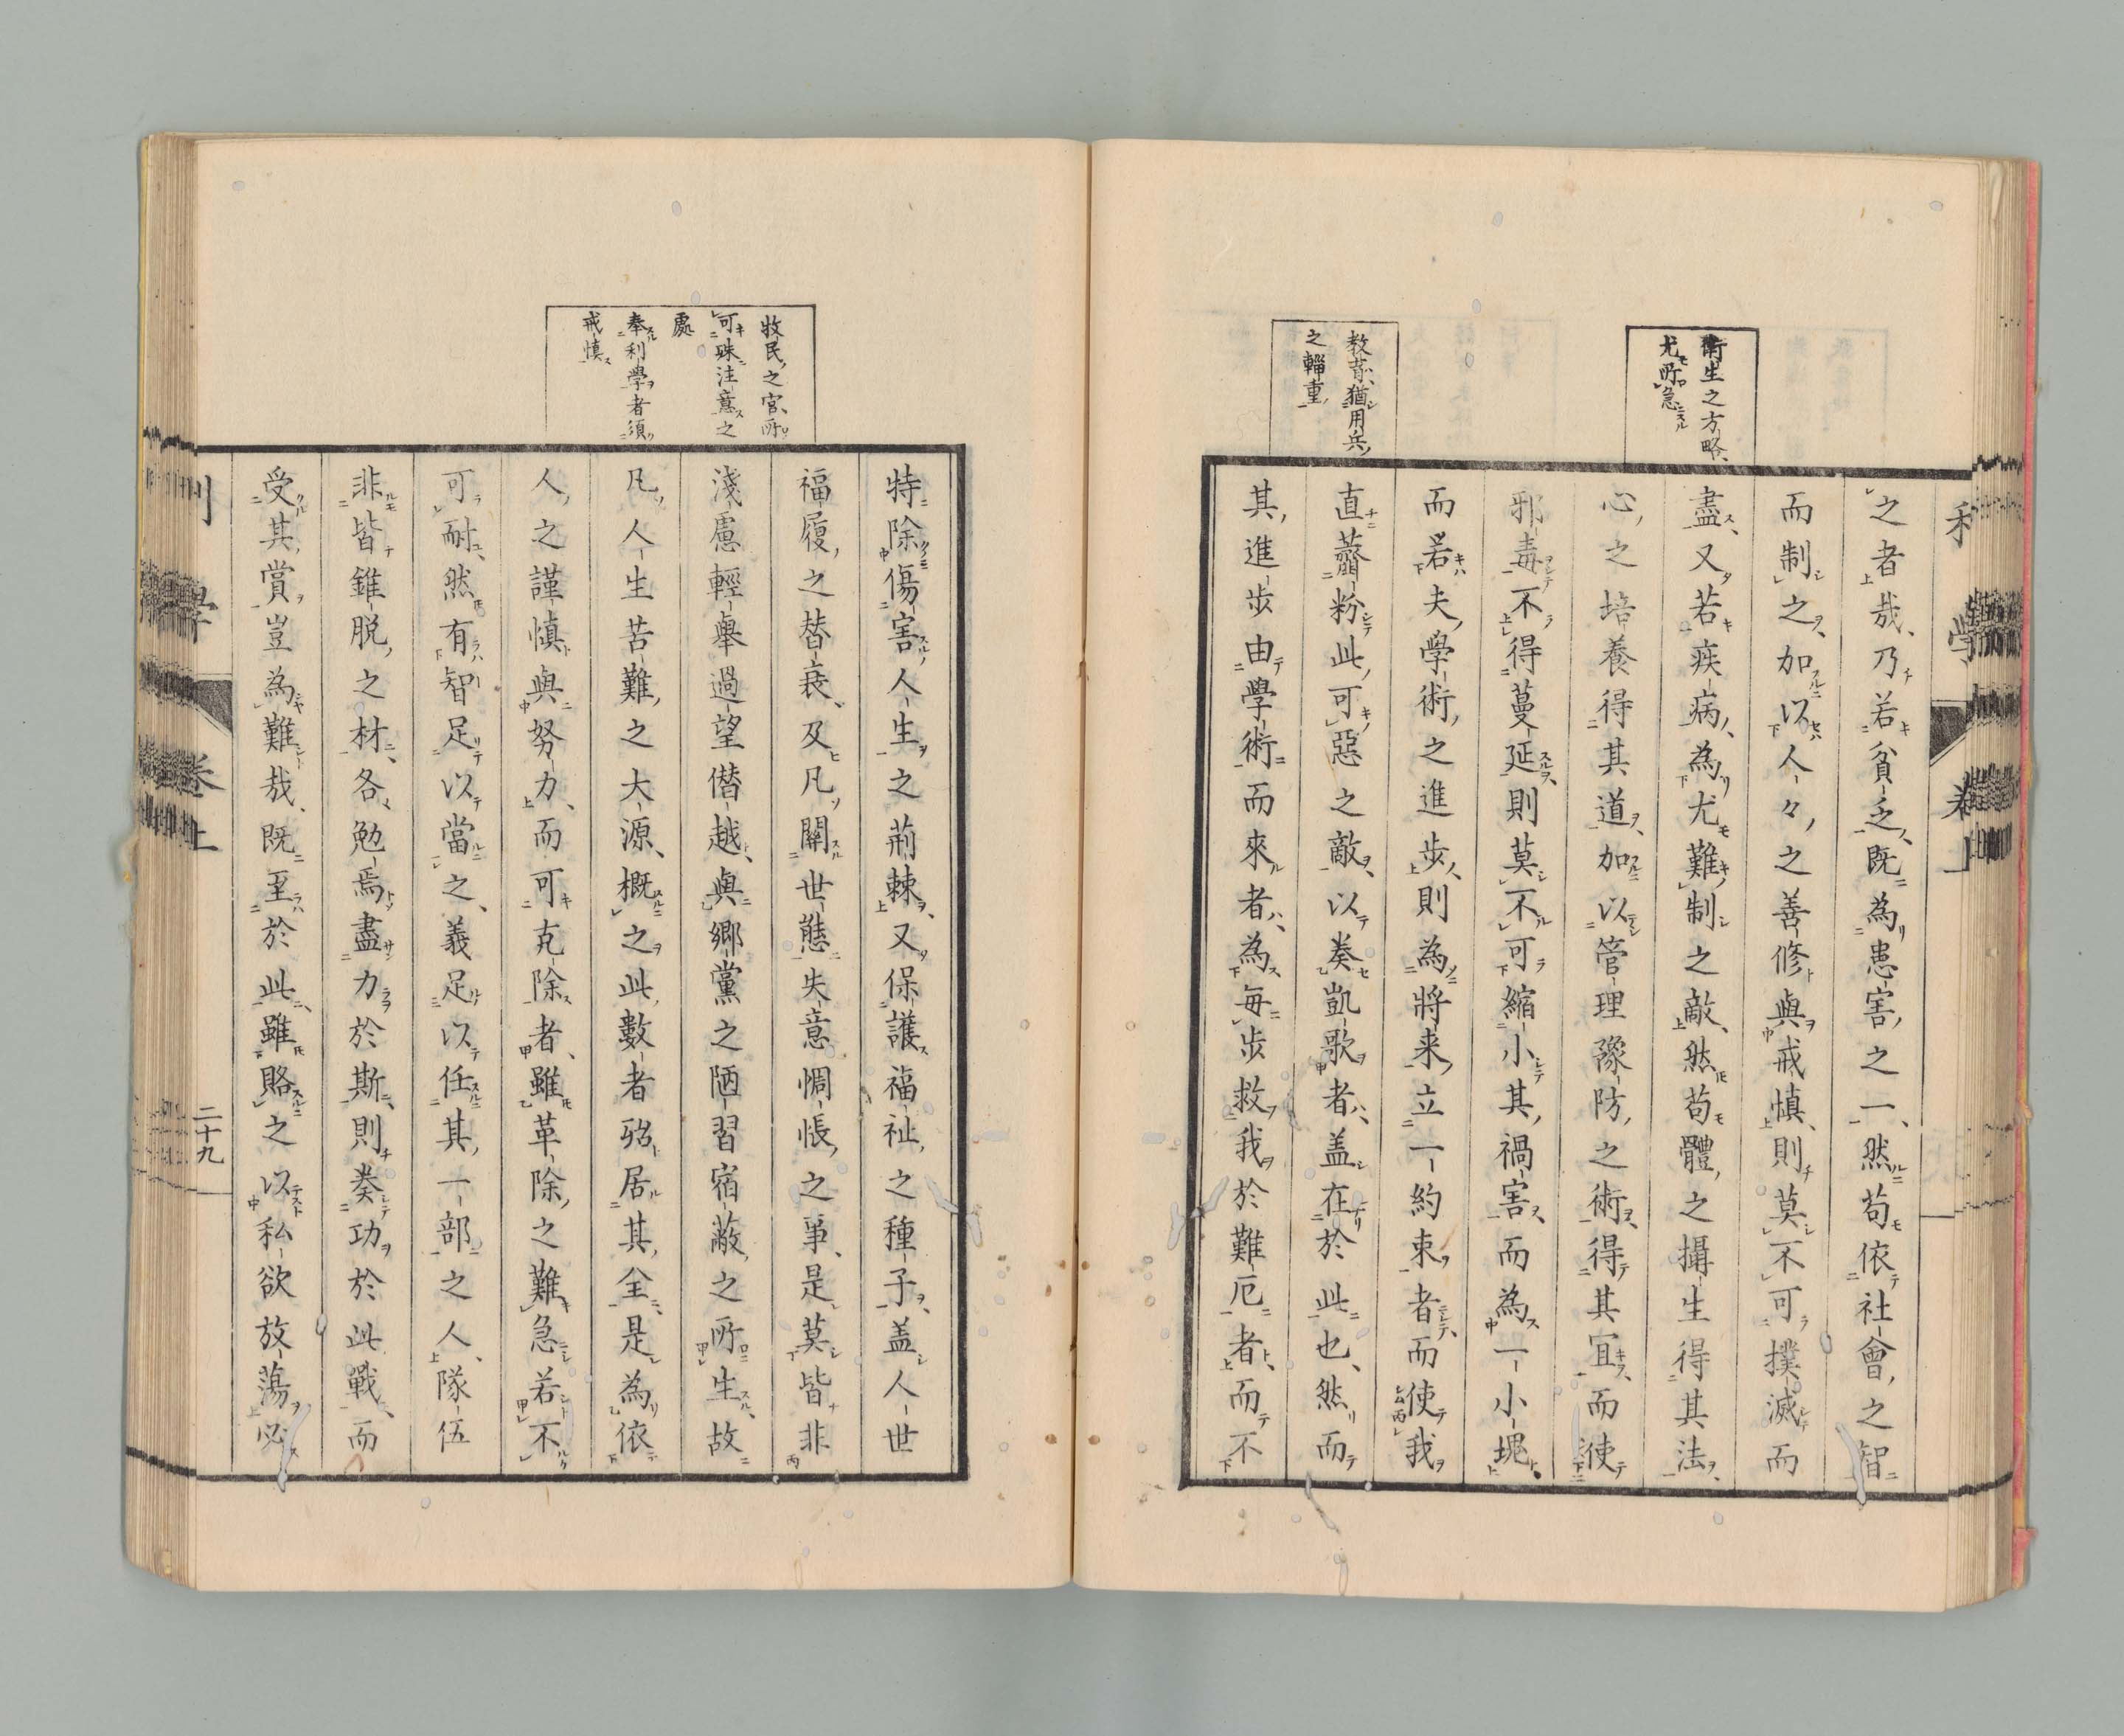 衛生之方略、
尤所急
教育、猶用兵、
之輜重
之者哉、乃若貧乏、既為患害之一、然苟依社會之智
而制之、加以人々之善修與戒慎、則莫不可撲滅而
盡、又若疾病、為尤難制之敵、然苟體之攝生得其法、
心之培養得其道、加以管理豫防之術、得其宜、而使
邪毒不得蔓延、則莫不可縮小其禍害、而為一小塊、
而若夫學術之進步、則為將来立一約束者、而使我
直虀粉此可惡之敵、以奏凱歌者、盖在於此也、然而
其進步由學術而來者、為毎步救我於難厄者、而不
利學 卷上
牧民之官、所
可殊注意之
處
奉利學者須
戒慎
特除傷害人生之荊棘、又保護福祉之種子、盖人世
福履之替衰、及凡關世態失意惆悵之事、是莫皆非
淺慮輕擧過望僭越、與鄉黨之陋習宿蔽之所生、故
凡人生苦難之大源、概之此數者殆居其全、是為依
人之謹慎與努力、而可克除者、雖革除之難急若不
可耐、然有智足以當之、義足以任其一部之人、隊伍
非皆錐脱之材、各勉焉盡力於斯、則奏功於此戰、而
受其賞豈為難哉、既至於此、雖賂之以私欲放蕩必
利學 卷上 二十九